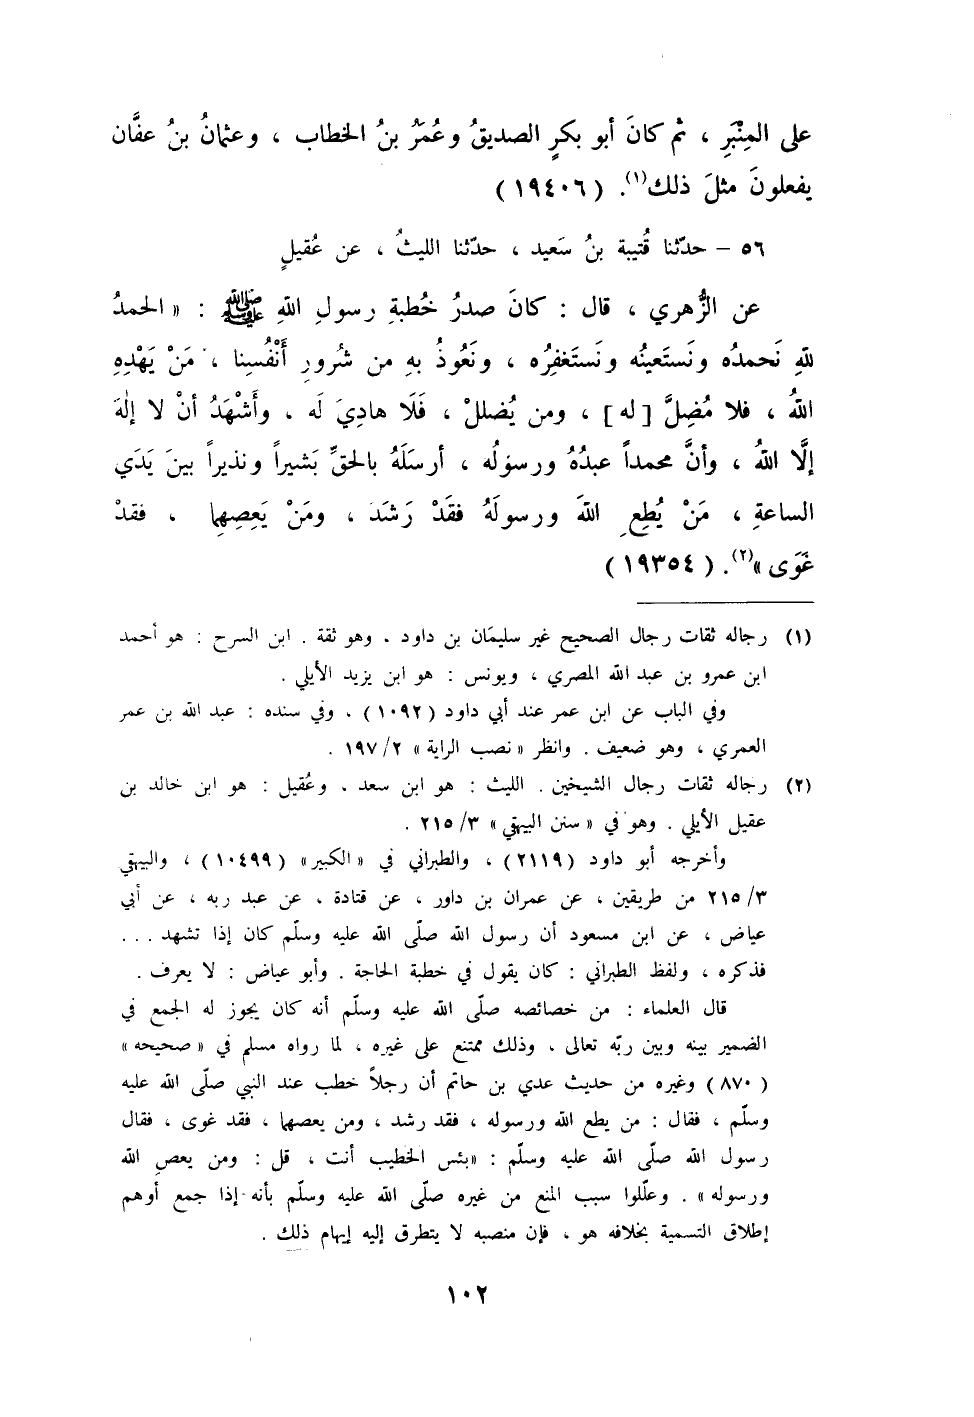 على المِنْبَرِ ، ثم كانَ أبو بكرٍ الصديقُ وعُمَرُ بنُ الخطاب ، وعثمانُ بنُ عفَّان
يفعلونَ مثلَ ذلك(١). (١٩٤٠٦)
٥٦ – حدّثنا قُتيبة بنُ سَعيد ، حدّثنا الليثُ ، عن عُقيلٍ
عن الزُّهري ، قال : كانَ صدرُ خُطبةِ رسولِ اللهِ ﷺ : « الحمدُ
للهِ نَحمدُه ونَستَعينُه ونَستَغفِرُه ، ونَعُوذُ بهِ من شُرورِ أَنْفُسِنا ، مَنْ يَهْدِهِ
اللهُ ، فلا مُضِلَّ [ له ] ، ومن يُضللْ ، فَلَا هادِيَ لَه . وأَشْهَدُ أنْ لا إلٰهَ
إلَّا اللهُ ، وأنَّ محمداً عبدُهُ ورسولُه ، أرسَلَهُ بالحقِّ بَشيراً ونذيراً بينَ يَدَي
الساعةِ ، مَنْ يُطِعِ اللهَ ورسولَهُ فقَدْ رَشَدَ ، ومَنْ يَعصِهِما ، فقدْ
غَوَى »(٢). (١٩٣٥٤)
(١) رجاله ثقات رجال الصحيح غير سليمان بن داود ، وهو ثقة . ابن السرح : هو أحمد
ابن عمرو بن عبد الله المصري ، ويونس : هو ابن يزيد الأيلي .
وفي الباب عن ابن عمر عند أبي داود (١٠٩٢) ، وفي سنده : عبد الله بن عمر
العمري ، وهو ضعيف . وانظر « نصب الراية » ١٩٧/٢ .
(٢) رجاله ثقات رجال الشيخين . الليث : هو ابن سعد . وعُقيل : هو ابن خالد بن
عقيل الأيلي . وهو في « سنن البيهقي » ٢١٥/٣ .
وأخرجه أبو داود (٢١١٩) ، والطبراني في « الكبير » (١٠٤٩٩) ، والبيهقي
٢١٥/٣ من طريقين ، عن عمران بن داور ، عن قتادة ، عن عبد ربه ، عن أبي
عياض ، عن ابن مسعود أن رسول الله صلّى الله عليه وسلّم كان إذا تشهد ...
فذكره ، ولفظ الطبراني : كان يقول في خطبة الحاجة . وأبو عياض : لا يعرف .
قال العلماء : من خصائصه صلّى الله عليه وسلّم أنه كان يجوز له الجمع في
الضمير بينه وبين ربّه تعالى ، وذلك ممتنع على غيره ، لما رواه مسلم في « صحيحه »
(٨٧٠) وغيره من حديث عدي بن حاتم أن رجلاً خطب عند النبي صلّى الله عليه
وسلّم ، فقال : من يطع الله ورسوله ، فقد رشد ، ومن يعصهما ، فقد غوى ، فقال
رسول الله صلّى الله عليه وسلّم : « بئس الخطيب أنت ، قل : ومن يعصِ الله
ورسوله » . وعلّلوا سبب المنع من غيره صلّى الله عليه وسلّم بأنه إذا جمع أوهم
إطلاق التسمية بخلافه هو ، فإن منصبه لا يتطرق إليه إيهام ذلك .
١٠٢